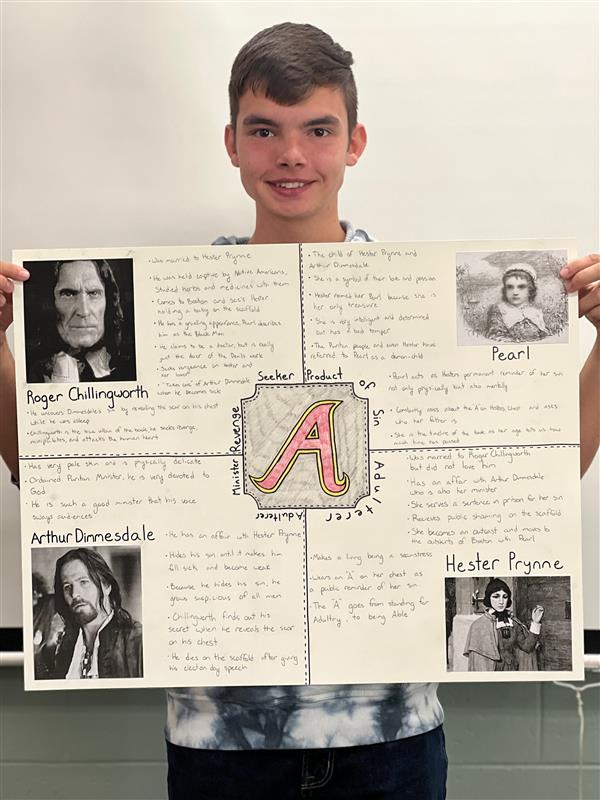 • Was married to Hester Prynne
• He was held captive by Native Americans,
studied herbs and medicines with them
• Comes to Boston and see's Hester
holding a baby on the scaffold
• He has a grueling appearance, Pearl describes
him as the Black Man
• He claims to be a doctor, but is really
just the doer of the Devil's work
• Seeks vengeance on Hester and
her lover
• "Takes care" of Arthur Dimmesdale
when he becomes sick
Roger Chillingworth
• He uncovers Dimmesdale's sin by revealing the scar on his chest
while he was asleep
• Chillingworth is the true villian of the book, he seeks revenge,
manipulates, and attacks the human heart
• The child of Hester Prynne and
Arthur Dimmesdale
• She is a symbol of their love and passion
• Hester named her Pearl because she is
her only treasure
• She is very intelligent and determined
but has a bad temper
• The Puritan people and even Hester have
referred to Pearl as a demon-child
Pearl
• Pearl acts as Hester's permanent reminder of her sin
not only physically but also mentally
• Constantly asks about the A on Hester's chest and asks
who her father is
• She is the timeline of the book as her age tells us how
much time has passed
Revenge Seeker
Product of Sin
A
Minister Adulterer
Adulterer
• Has very pale skin and is physically delicate
• Ordained Puritan Minister, he is very devoted to
God
• He is such a good minister that his voice
sways audiences
Arthur Dimmesdale
• He has an affair with Hester Prynne
• Hides his sin until it makes him
fall sick, and become weak
• Because he hides his sin, he
grows suspicious of all men
• Chillingworth finds out his
secret when he reveals the scar
on his chest
• He dies on the scaffold after giving
his election day speech
• Was married to Roger Chillingworth
but did not love him
• Has an affair with Arthur Dimmesdale
who is also her minister
• She serves a sentence in prison for her sin
• Recieves public shaming on the scaffold
• She becomes an outcast and moves to
the outskirts of Boston with Pearl
• Makes a living being a seamstress
• Wears an "A" on her chest as
a public reminder of her sin
• The "A" goes from standing for
Adultry, to being Able
Hester Prynne